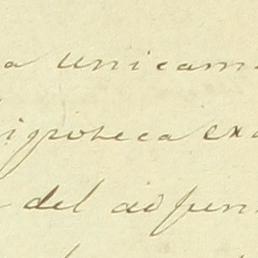 a unicam
igroteca exa
del adjun